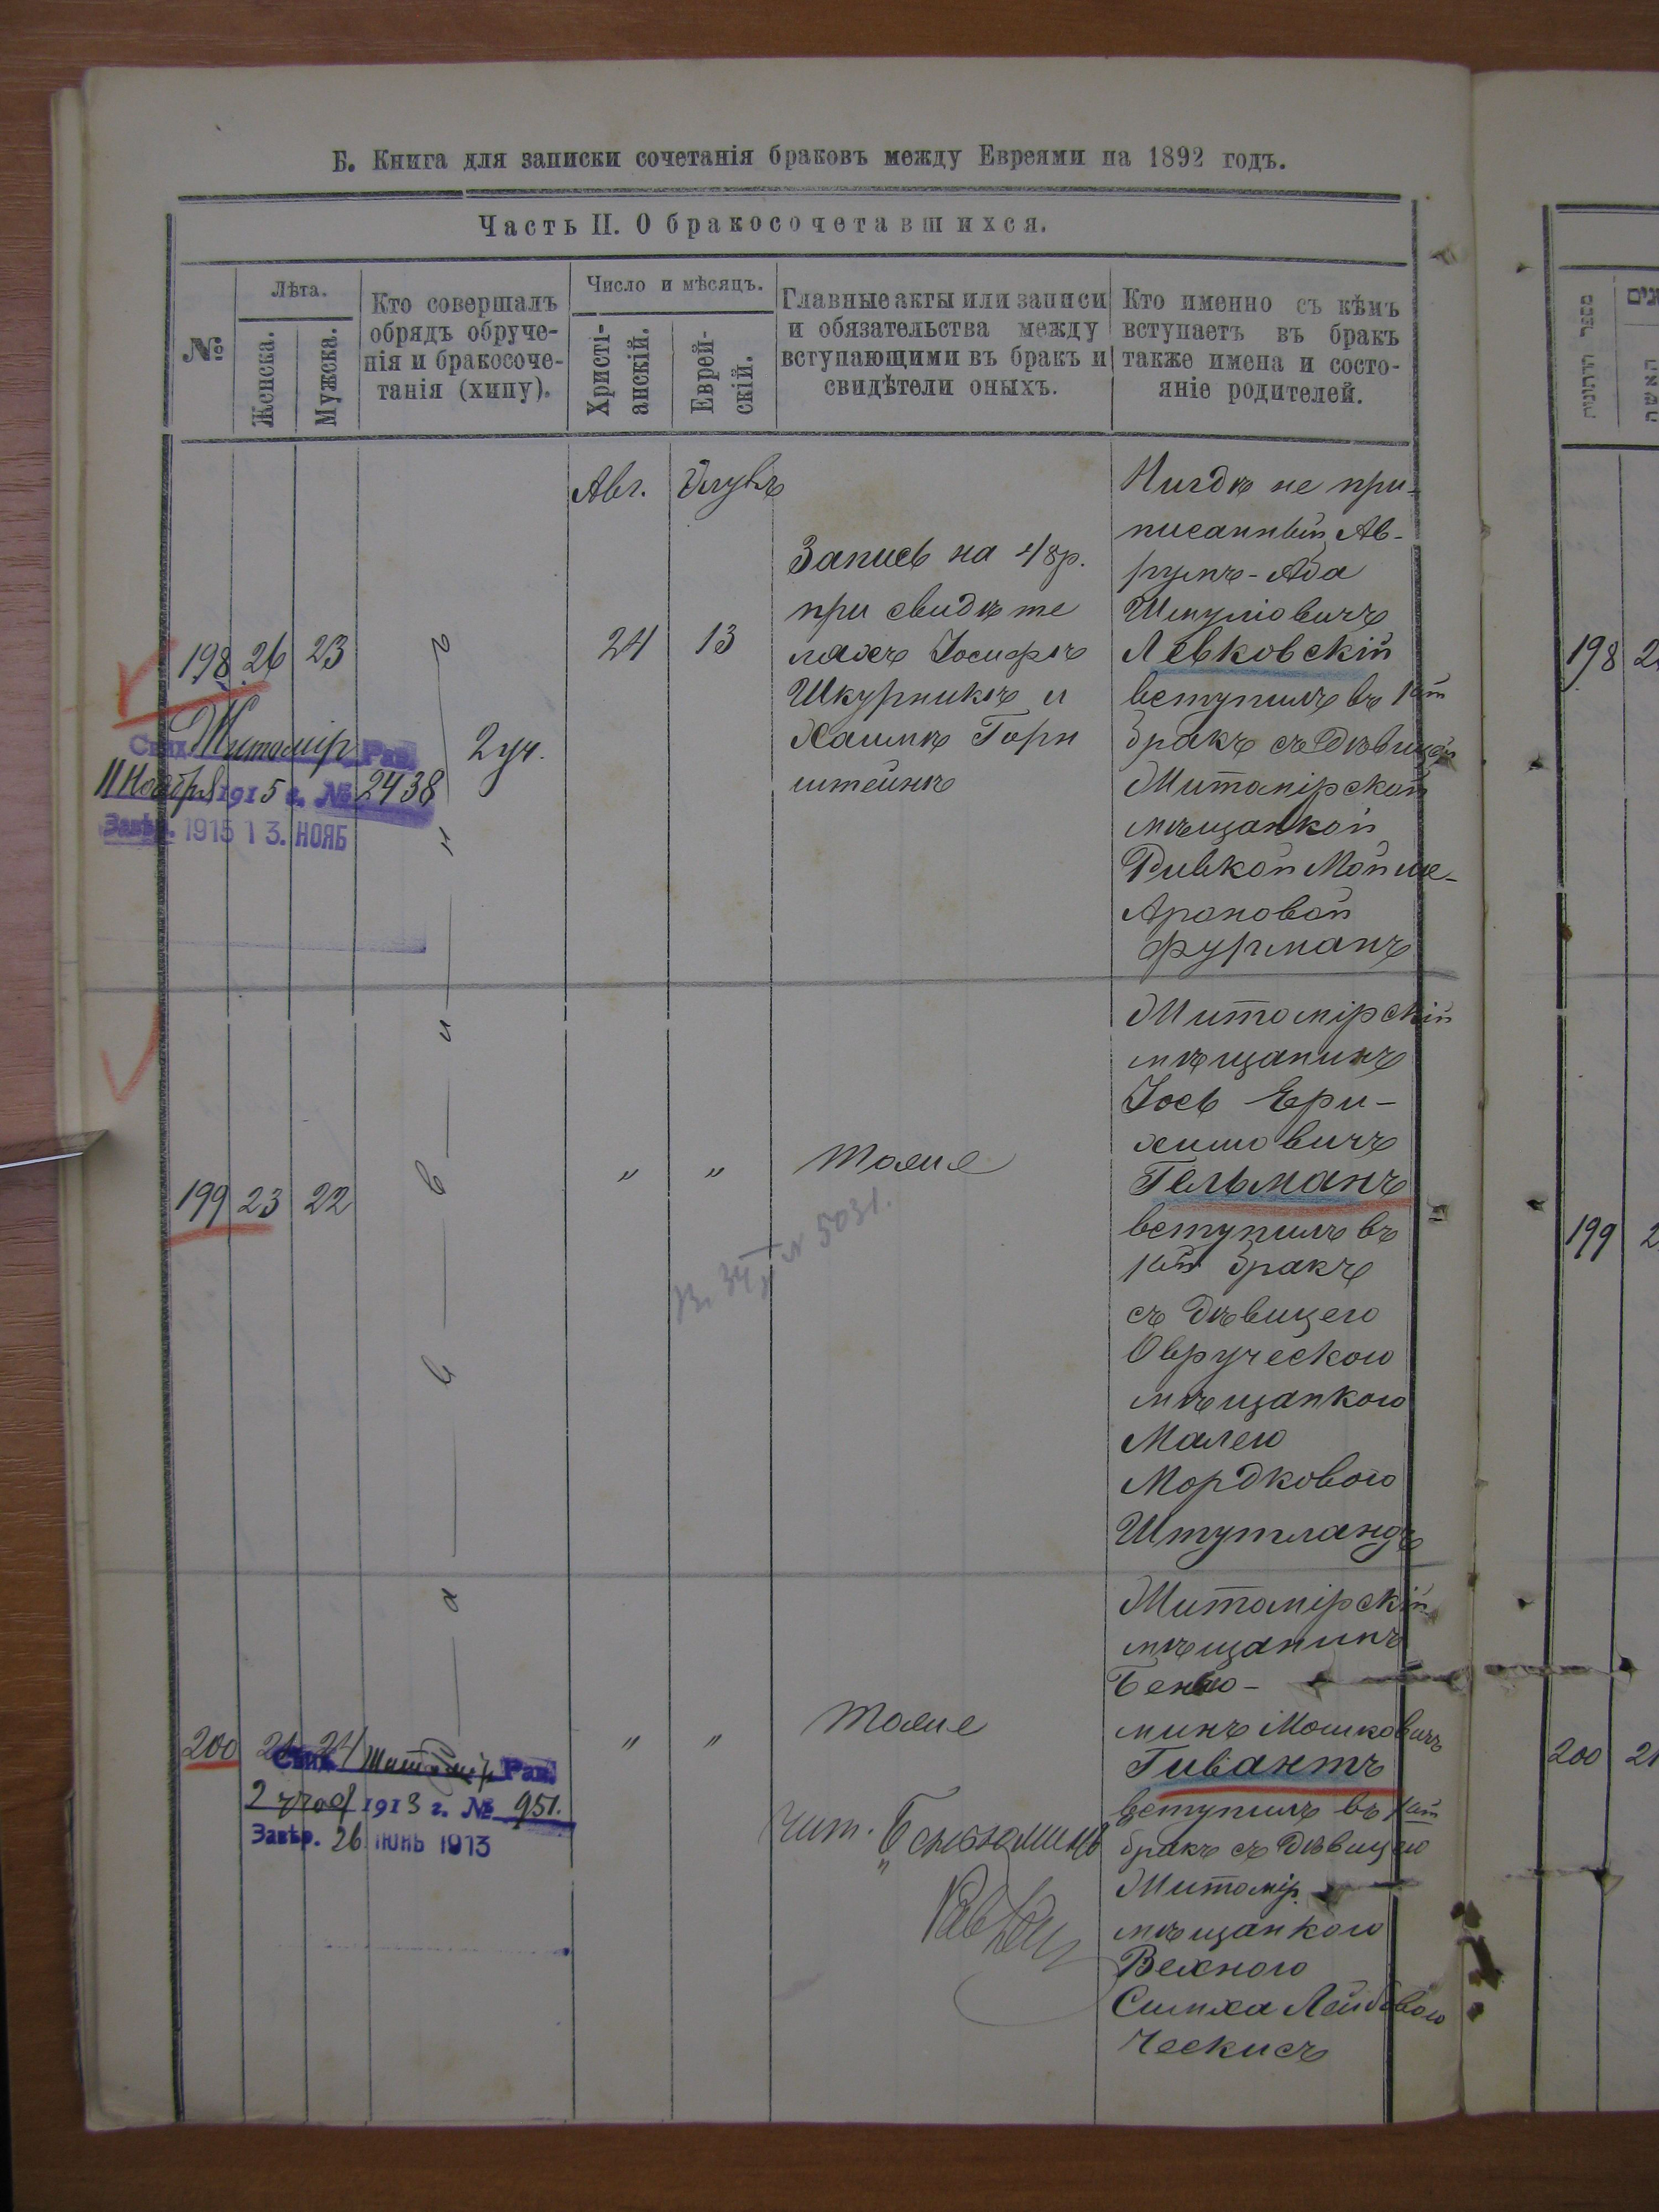 Б. Книга для записки сочетанія браковъ между Евреями на 1892 годъ.
Часть II. О бракосочетавшихся.
№
Лѣта.
Женска.
Мужска.
Кто совершалъ
обрядъ обруче-
нія и бракосоче-
танія (хипу).
Число и мѣсяцъ.
Христі-
анскій.
Еврей-
скій.
Главные акты или записи
и обязательства между
вступающими въ бракъ и
свидѣтели оныхъ.
Кто именно съ кѣмъ
вступаетъ въ бракъ
также имена и состо-
яніе родителей.
Авг.
198 26 23
2 уч.
24 13
Запись на 48 р.
при свидѣте
ляхъ Іосифѣ
Шкурникъ и
Хаимѣ Горн
штейнъ
Нигдѣ не при-
писанный Ав-
румъ-Аба
Шмуліовичъ
Левковскій
вступилъ въ 1ый
бракъ съ дѣвицей
Житомірской
мѣщанкой
Ривкой Мойше-
Ароновой
Фурманъ
Свид. Житомір Рав.
11 Ноября 1915 г. № 2438
Завѣр. 1915 13. НОЯБ
199 23 22
" "
тоже
№ 5031.
Житомірскій
мѣщанинъ
Іось Ери-
химовичъ
Гельманъ
вступилъ въ
1ый бракъ
съ дѣвицею
Овручскою
мѣщанкою
Малею
Мордковою
Штутландъ
200 21 24
" "
тоже
Свид. Житомір Рав.
1913 г. № 951.
Завѣр. 26 ІЮНЬ 1913
Чит. "Беньюминъ"
Житомірскій
мѣщанинъ
Беню-
минъ Мошковичъ
Гивантъ
вступилъ въ 1ый
бракъ съ дѣвицею
Житомір.
мѣщанкою
Симха Лейбовою
Ческисъ
מספר הזווגים
האשה
198
199
200 21